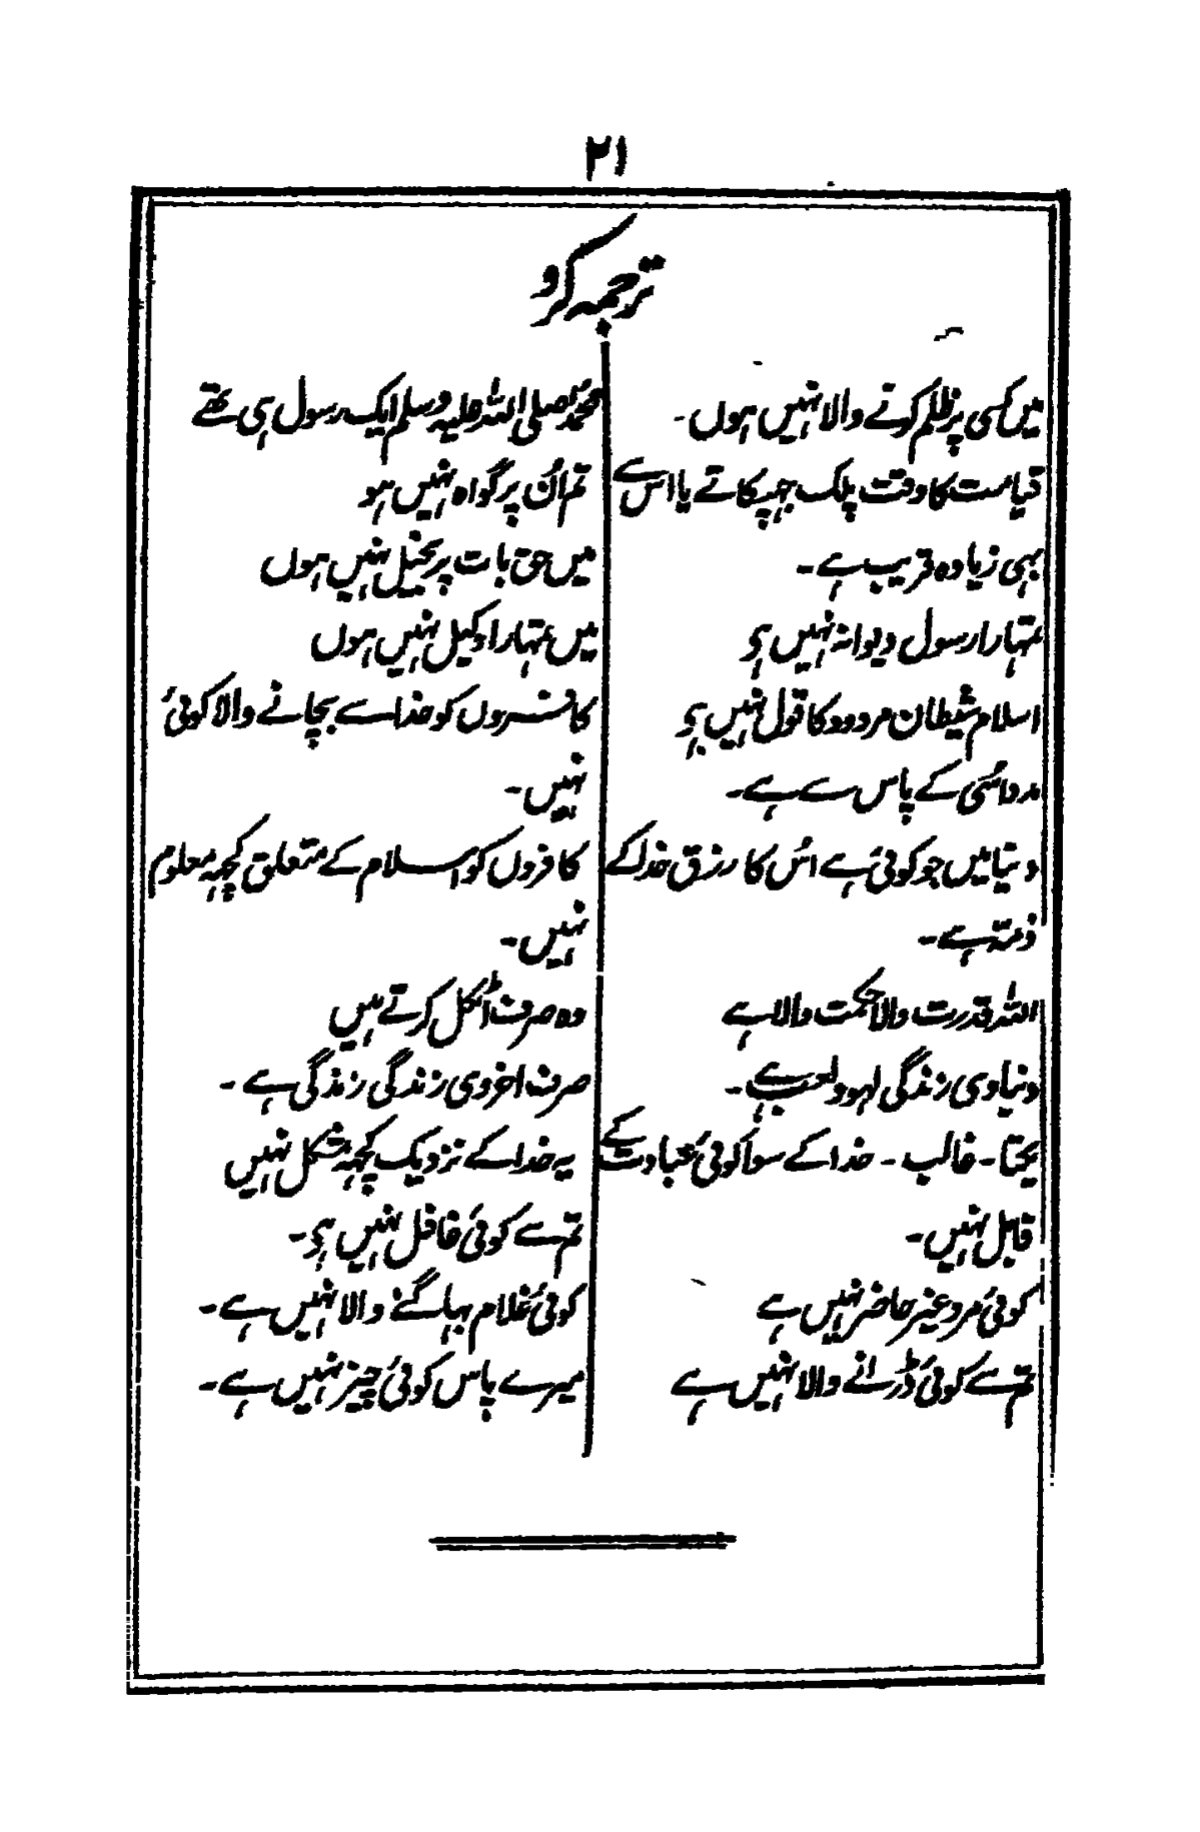 ۲۱
ترجمہ کرو
میں کسی پر ظلم کرنے والا نہیں ہوں۔
قیامت کا وقت پلک جہپکاتے یا اس سے
بہی زیادہ قریب ہے۔
تمہارا رسول دیوانہ نہیں ہی
اسلام شیطان مردود کا قول نہیں ہی
مدد اسُی کے پاس سے ہے۔
دنیا میں جو کوئی ہے اسُ کا رزق خدا کے
ذمّہ ہے۔
اللہ قدرت والا حکمت والا ہے
دنیاوی زندگی لہو ولعب ہے۔
یکتا۔ غالب۔ خدا کے سوا کوئی عبادت کے
قابل نہیں۔
کوئی مرد غیر حاضر نہیں ہے
تم سے کوئی ڈرانے والا نہیں ہے
محمدؐ صلی اللہ علیہ وسلم ایک رسول ہی تھے
تم انُ پر گواہ نہیں ہو
میں حق بات پر بخیل نہیں ہوں
میں تمہارا وکیل نہیں ہوں
کافروں کو خدا سے بچانے والا کوئی
نہیں۔
کافروں کو اسلام کے متعلق کچہہ معلوم
نہیں۔
وہ صرف اٹکل کرتے ہیں
صرف اخروی زندگی زندگی ہے۔
یہ خدا کے نزدیک کچہہ مشکل نہیں
تم سے کوئی غافل نہیں ہی۔
کوئی غلام بہاگنے والا نہیں ہے۔
میرے پاس کوئی چیز نہیں ہے۔